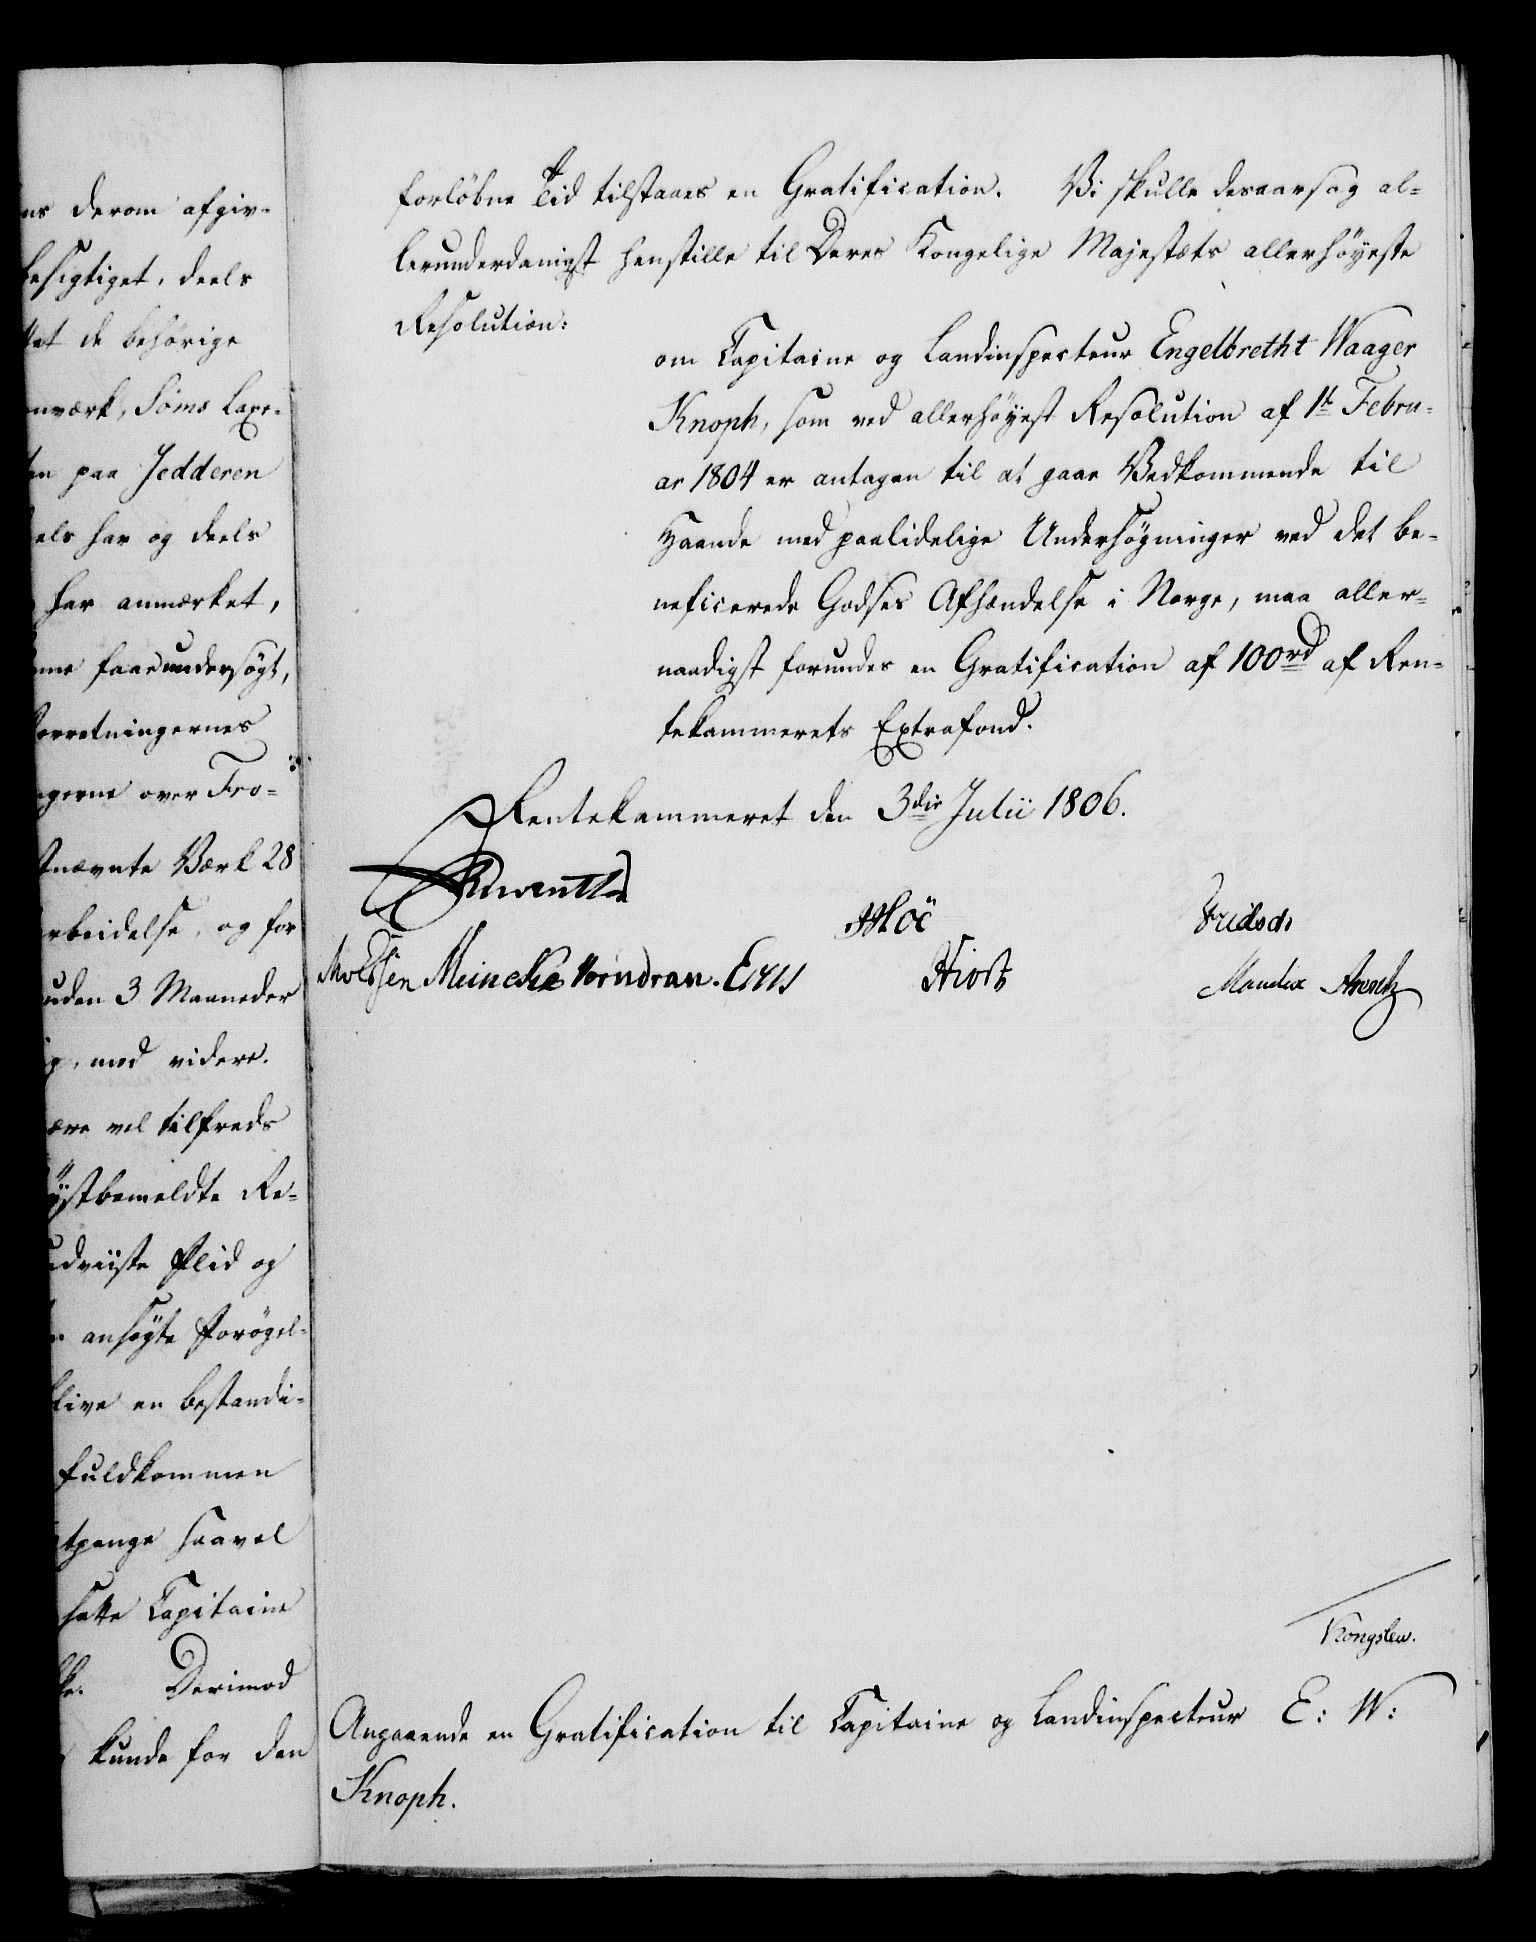 ns derom afgiv-
besigtiget, deels
tet de behörige
nværk, Söms Laxe-
ten paa Jedderen
eels har og deels
har anmærket,
nne faae undersögt,
Forretningernes
ngerne over Fro-
stnævnte Værk 28
rbeidelse, og for
uden 3 Maaneder
ig, med videre.
ære vel tilfreds
öystbemeldte Re-
udviiste Flid og
ansögte Forögel-
blive en bestandi-
fuldkommen
tpenge saavel
satte Capitaine
kke. Derimod
kunde for den
forlöbne Tid tilstaaes en Gratification. Vi skulle desaarsag al-
lerunderdanigst henstille til Deres Kongelige Majestæts allerhöyeste
Resolution:
om Capitaine og Landinspecteur Engelbretht Waager
Knoph, som ved allerhöyest Resolution af 1t Febru-
ar 1804 er antagen til at gaae Vedkommende til
Haande med paalidelige Undersögninger ved det be-
neficerede Godses Afhændelse i Norge, maa aller-
naadigst forundes en Gratification af 100rd af Ren-
tekammerets Extrafond.
Rentekammeret den 3die Julii 1806.
Reventlow
Moë Fridsch
Moldsen Meincke Vorndran. Erns Hiort Mandix Arentz
Kongslew.
Angaaende en Gratification til Capitaine og Landinspecteur E: W:
Knoph.